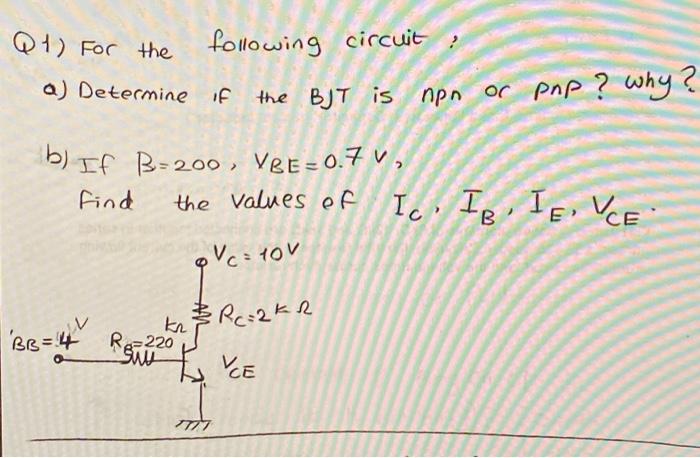 Q1) For the following circuit ;
a) Determine if the BJT is npn or pnp? why?
b) If β=200, VBE=0.7 V,
find the values of IC, IB, IE, VCE.
VC=10V
RC=2kΩ
BB=4V RB=220 kΩ
VCE